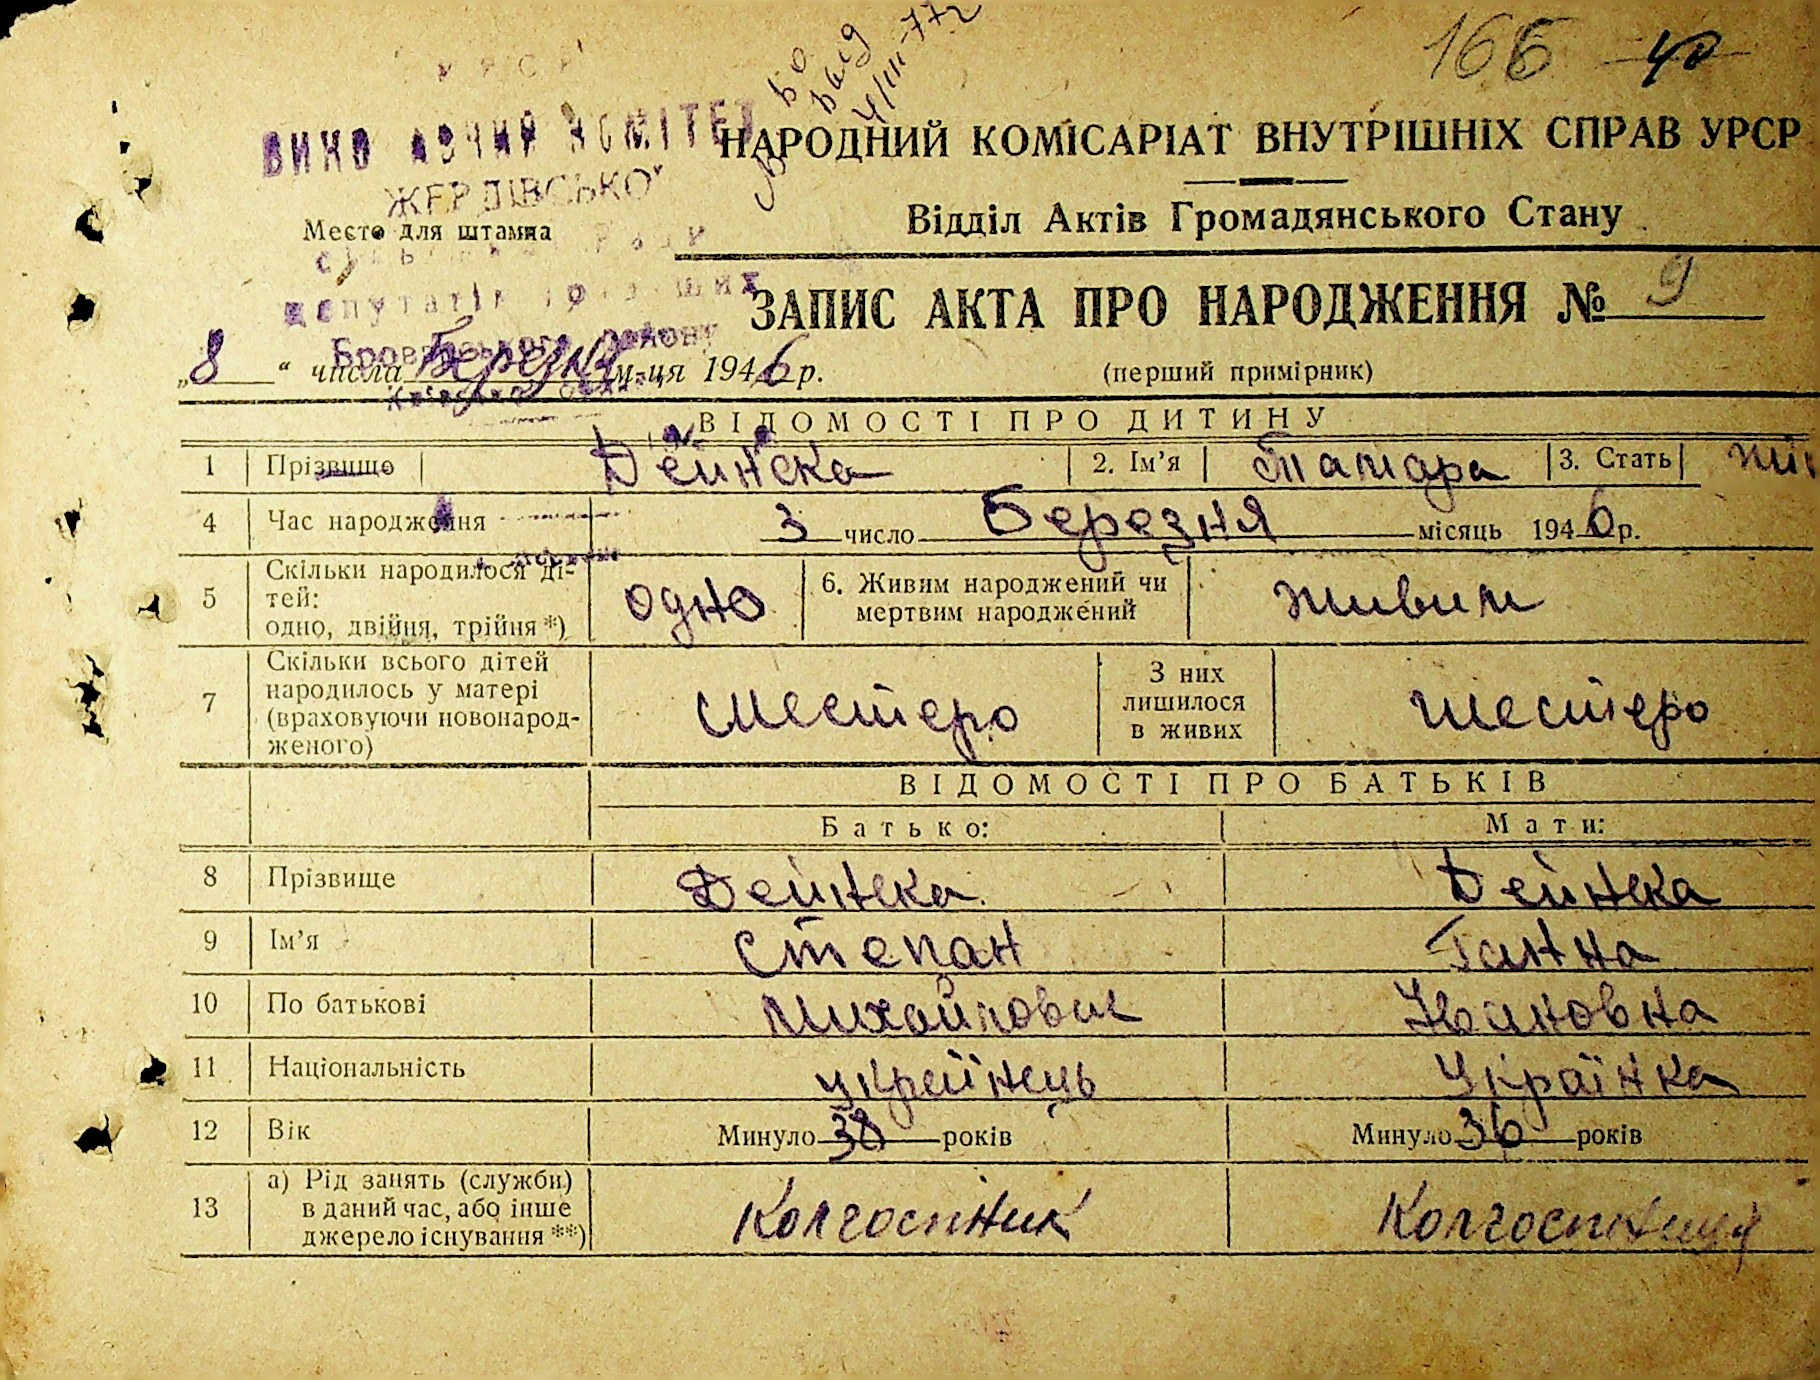 165 40
ВИКО АВЧИЙ КОМІТЕТ
НАРОДНИЙ КОМІСАРІАТ ВНУТРІШНІХ СПРАВ УРСР
ЖЕРДІВСЬКОЇ
Место для штампа
Відділ Актів Громадянського Стану
депутатів
ЗАПИС АКТА ПРО НАРОДЖЕННЯ № 9
„8“ числа Березня м-ця 1946 р.
(перший примірник)
ВІДОМОСТІ ПРО ДИТИНУ
1 Прізвище Дейнека 2. Ім'я Тамара 3. Стать
4 Час народження 3 число Березня місяць 1946 р.
5 Скільки народилося ді-
тей:
одно, двійня, трійня *) одно 6. Живим народжений чи
мертвим народжений живим
7 Скільки всього дітей
народилось у матері
(враховуючи новонарод-
женого) шестеро З них
лишилося
в живих шестеро
ВІДОМОСТІ ПРО БАТЬКІВ
Батько: Мати:
8 Прізвище Дейнека Дейнека
9 Ім'я Степан Ганна
10 По батькові Михайлович Ивановна
11 Національність українець Українка
12 Вік Минуло 38 років Минуло 36 років
13 а) Рід занять (служби)
в даний час, або інше
джерело існування **) Колгоспник Колгоспниця